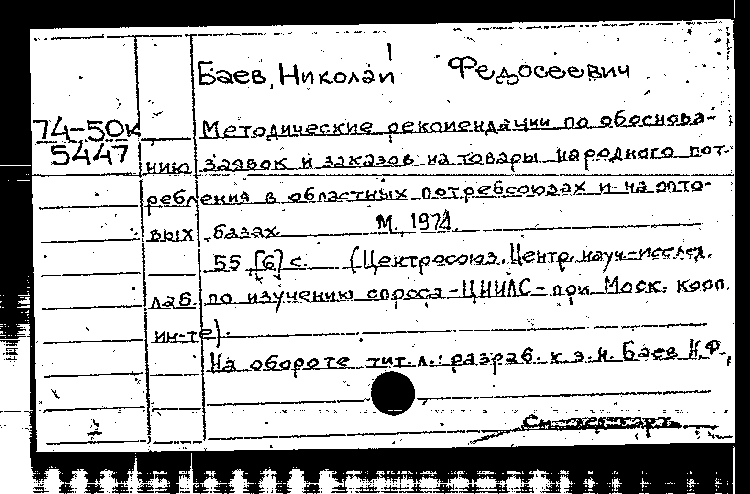 Баев, Николай Федосеевич
74-50к
5447
Методические рекомендации по обоснова-
нию заявок и заказов на товары народного пот-
ребления в областных потребсоюзах и на опто-
вых базах М., 1974.
55 [6] с. (Центросоюз. Центр. науч-исслед.
лаб. по изучению спроса-ЦНИЛС-при Моск. кооп.
ин-те).
На обороте тит. л.: разраб. к.э.н. Баев Н.Ф.,
См. след. карт.